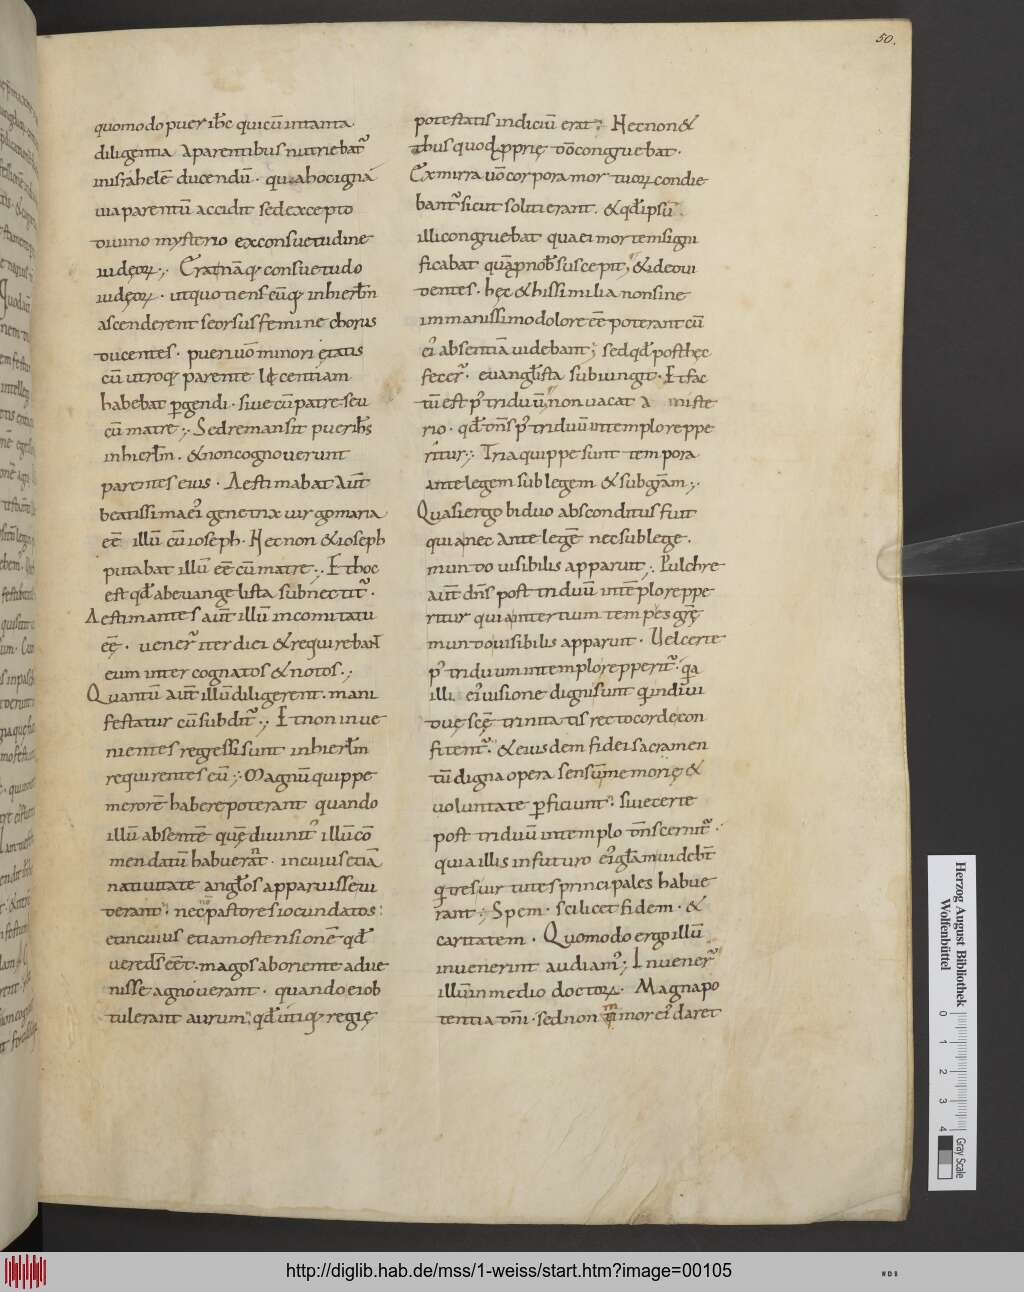 50.
quomodo puer ihc quicū intanta
diligentia aparentibus nutriebat̃
inisrahelē ducendū. quia hoc ignā
uia parentū accidit sed excepto
diuino mysterio exconsuetudine
iudęoꝝ; Erat nāq; consuetudo
iudęoꝝ. utquotiens eūq; inhierłm
ascenderent seorsus femine chorus
ducentes. pueri uō minori ętatis
cū utroq; parente licentiam
habebat ꝑgendi. siue cū patre seu
cū matre; Sed remansit puer ihs
inhierłm. & non cognouerunt
parentes eius. Aestimabat aut̄
beatissima ei genetrix uirgo maria
eē illū cū ioseph. Hec non & ioseph
putabat illū eē cū matre; Et hoc
est qđ abeuangelista subnectit̃.
Aestimantes aut̄ illū incomitatu
eē. uener̃ iter diei & requirebant
eum inter cognatos & notos.;
Quantū aut̄ illū diligerent. mani
festatur cū subdit̃.; Et non inue
nientes regressi sunt inhierłm
requirentes eū; Magnū quippe
merorē habere poterant quando
illū absentē quē diuinit' illū cō
mendatū habuerat. incuius etiā
natiuitate anglos apparuisse ui
derant. nec pastores iocundatos:
etincuius etiam ostensionē qđ
ueredš eēt. magos aboriente adue
nisse agnouerant. quando ei ob
tulerant aurum. qđ utiq; regię
potestatis indiciū erat; Hec non &
thus quod ꝓprię dō congruebat.
Ex mirra uō corpora mortuoꝝ condie
bant̃ sicut soliti erant. & qđ ipsū
illi congruebat qua ei mortem signi
ficabat quā ꝓ nob suscepit, & ideo ui
dentes. hęc & his similia non sine
immanissimo dolore eē poterant cū
ei' absentiā uidebant; sed qđ posthęc
fecer̃. euanglista subiungit. Et fac
tū est p' triduū, non uacat a miste
rio. qđ dns p' triduū intemplo reppe
ritur; Tria quippe sunt tempora
ante legem sub lege & sub grām;
Quasi ergo biduo absconditus fuit
quia nec ante legē nec sub lege.
mundo uisibilis apparuit; Pulchre
aut̄ dns post triduū intēplo reppe
ritur quia intertium tempes grę
mundo uisibilis apparuit. Uel certe
p' triduum intemplo repperit̃. qa
illi ei' uisione digni sunt qui indiui
duę scę trinitatis recto corde con
fitent̃. & eiusdem fidei sacramen
tū digna opera sensū memorię &
uoluntate ꝑficiunt. siue certe
post triduū intemplo dns cernit̃.
quia illis infuturo ei' głam uidebt̄
q tres uirtutes principales habue
rant; Spem. scilicet fidem. &
caritatem. Quomodo ergo illū
inuenerint audiam'; Inuener̃
illū in medio doctoꝝ. Magna po
tentia dni. sed non minor ei' daret
Herzog August Bibliothek
Wolfenbüttel
0 1 2 3 4
Gray Scale
http://diglib.hab.de/mss/1-weiss/start.htm?image=00105